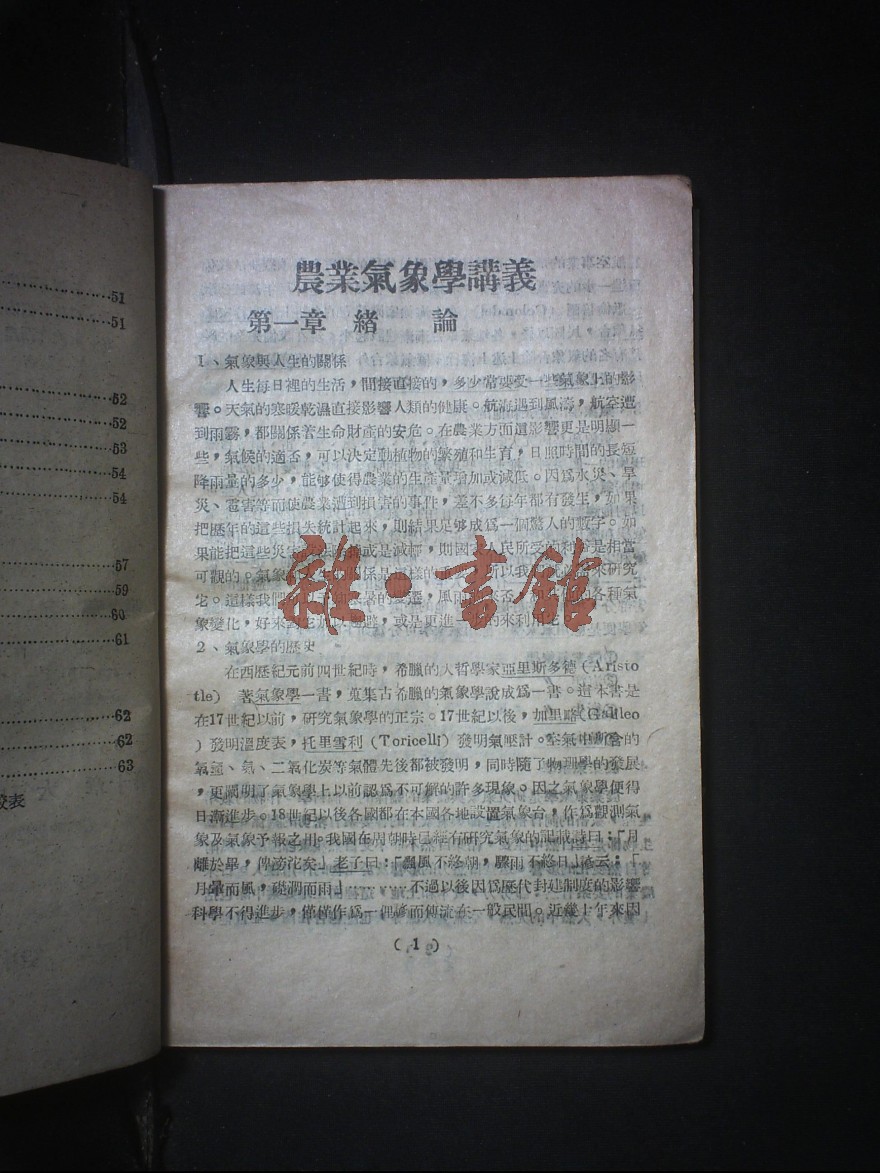 51
51
52
52
53
54
54
57
59
60
61
62
62
63
較表
農業氣象學講義
第一章 緒 論
1、氣象與人生的關係
人生每日裡的生活，間接直接的，多少常要受一些氣象上的影
響。天氣的寒暖乾濕直接影響人類的健康。航海遇到風濤，航空遭
到雨霧，都關係着生命財產的安危。在農業方面這影響更是明顯一
些，氣候的適否，可以決定動植物的繁殖和生育，日照時間的長短
降雨量的多少，能够使得農業的生產量增加或減低。因爲水災、旱
災、雹害等而使農業遭到損害的事件，差不多每年都有發生，如果
把歷年的這些損失統計起來，則結果足够成爲一個驚人的數字。如
果能把這些災害 或是減輕，則國 人民所受的利 是相當
可觀的。氣象 關係是這樣的 所以我 來研究
它。這樣我們 暑的變遷，風雨 各種氣
象變化，好來 或是更進一 的來利用它
雜·書館
2、氣象學的歷史
在西歷紀元前四世紀時，希臘的大哲學家亞里斯多德（Aristo
tle）著氣象學一書，蒐集古希臘的氣象學說成爲一書。這本書是
在17世紀以前，研究氣象學的正宗。17世紀以後，加里略（Galileo
）發明溫度表，托里雪利（Toricelli）發明氣壓計。空氣中所含的
氧、氮、二氧化炭等氣體先後都被發明，同時隨了物理學的發展
，更闡明了氣象學上以前認爲不可解的許多現象。因之氣象學便得
日漸進步。18世紀以後各國都在本國各地設置氣象台，作爲觀測氣
象及氣象予報之用。我國在周朝時已經有研究氣象的記載詩曰：「月
離於畢，俾滂沱矣」老子曰：「飄風不終朝，驟雨不終日」諺云：「
月暈而風，礎潤而雨」………不過以後因爲歷代封建制度的影響
科學不得進步，僅僅作爲一俚諺而傳流在一般民間。近幾十年來因
（1）